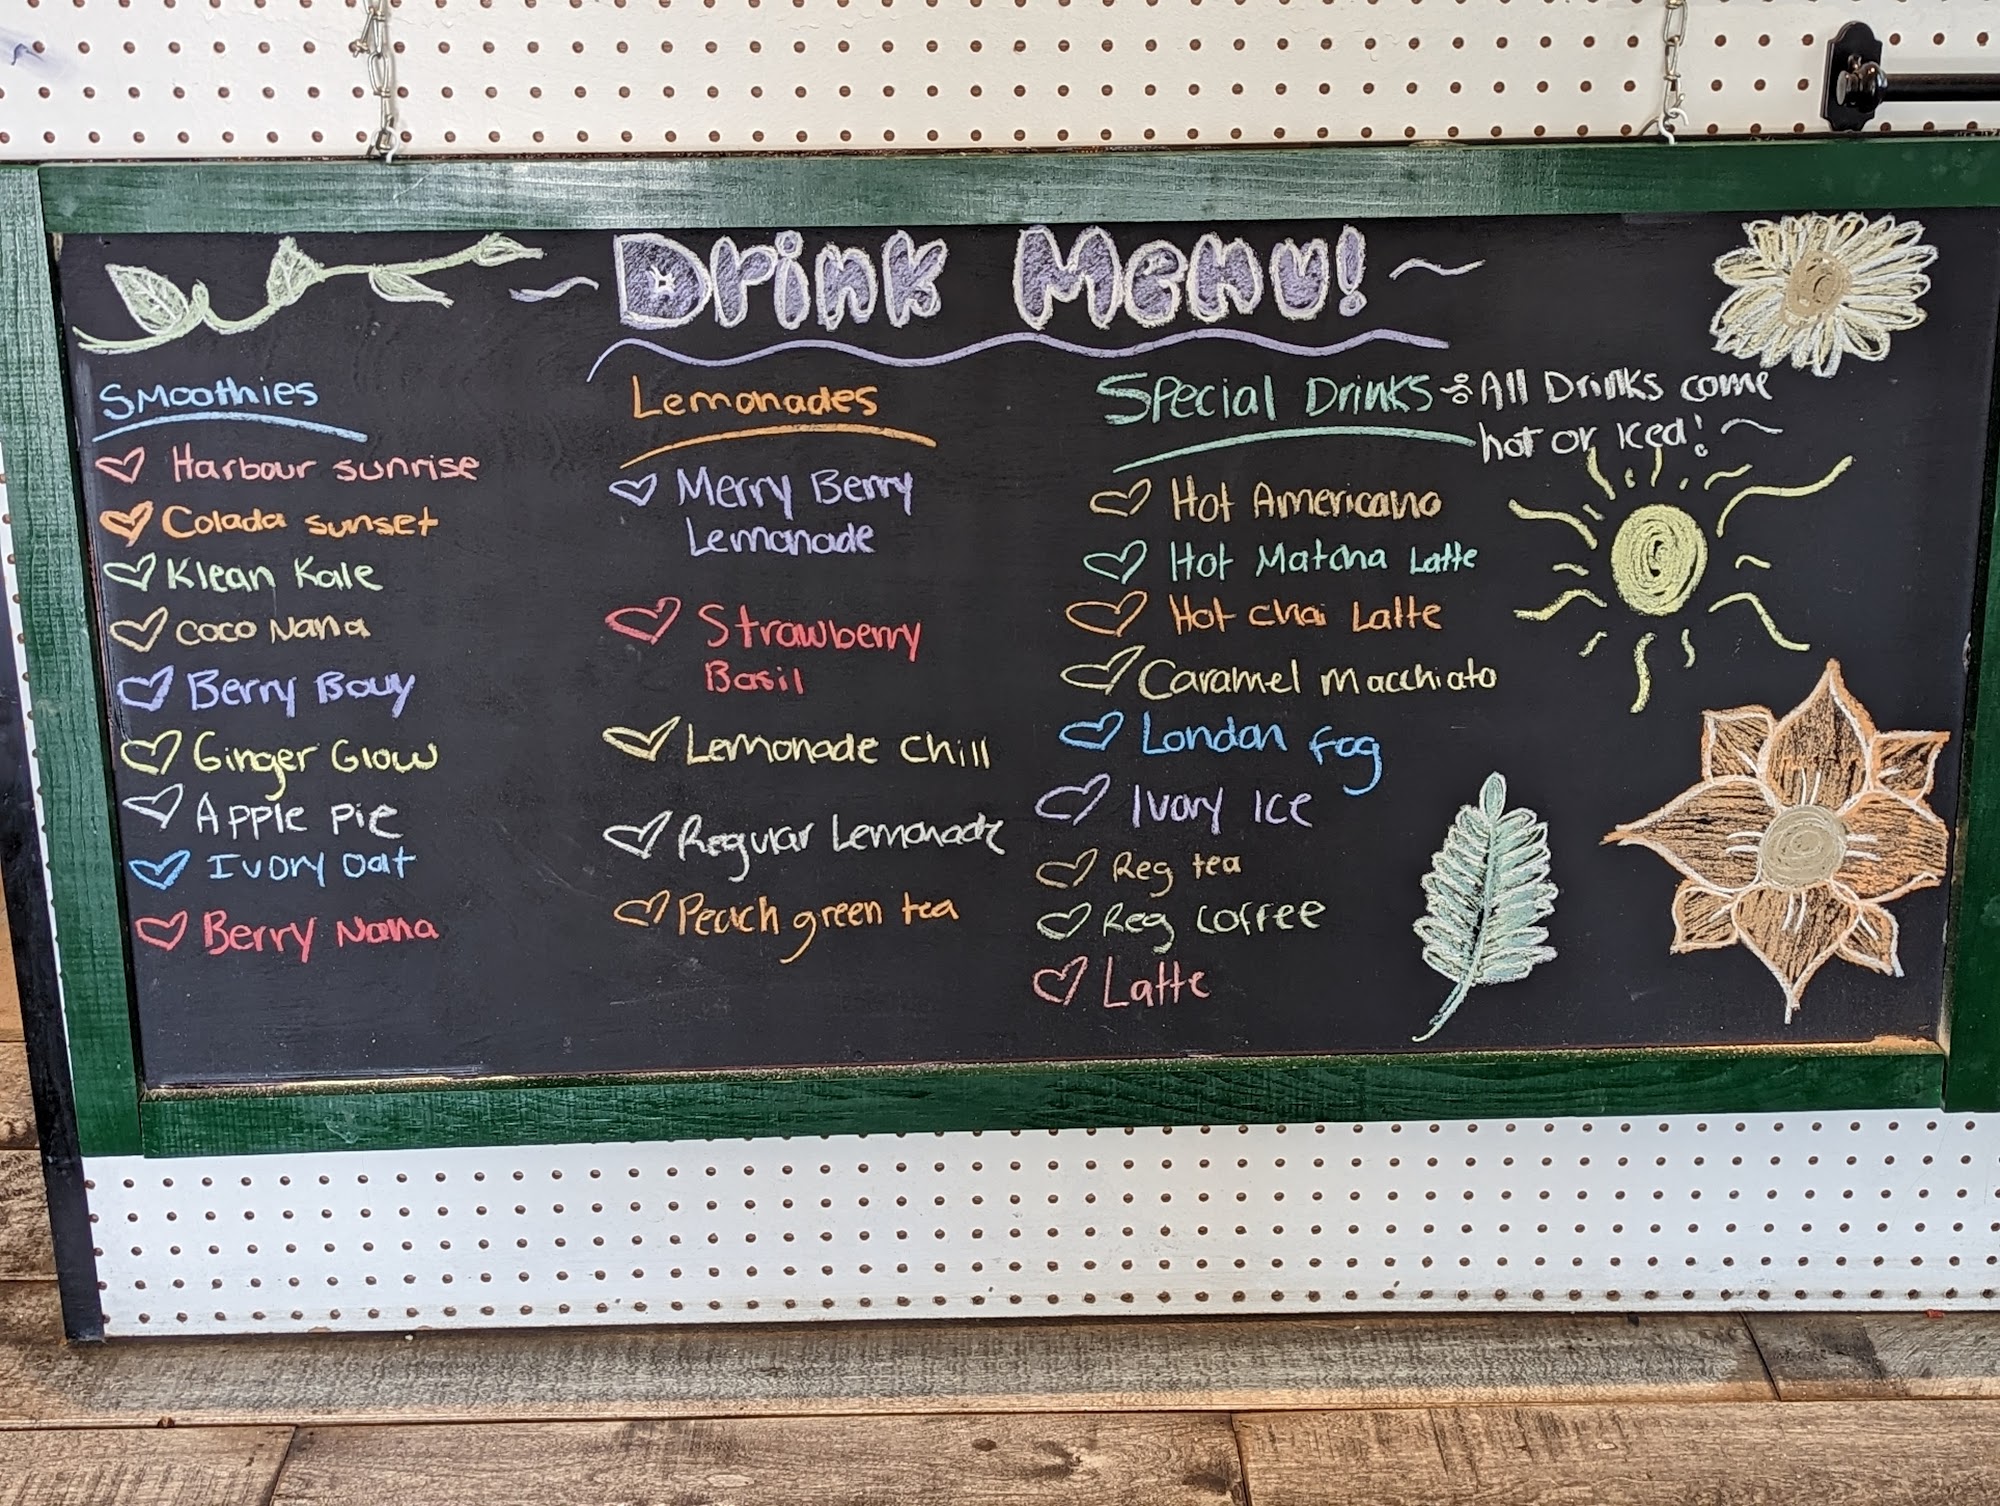 Drink Menu!
Smoothies
Harbour sunrise
Colada sunset
Klean Kale
Coco Nana
Berry Bouy
Ginger Glow
Apple pie
Ivory Oat
Berry Nana
Lemonades
Merry Berry
Lemonade
Strawberry
Basil
Lemonade Chill
Regular Lemonade
Peach green tea
Special Drinks All Drinks come
hot or iced!
Hot Americano
Hot Matcha Latte
Hot Chai Latte
Caramel Macchiato
London Fog
Ivory Ice
Reg tea
Reg Coffee
Latte